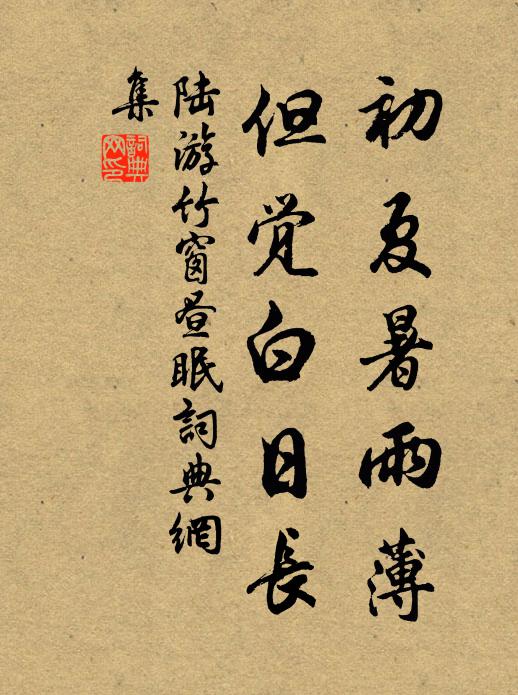 初夏暑雨薄
但觉白日長
陆游竹窗昼眠詞典網
集
詞典网印